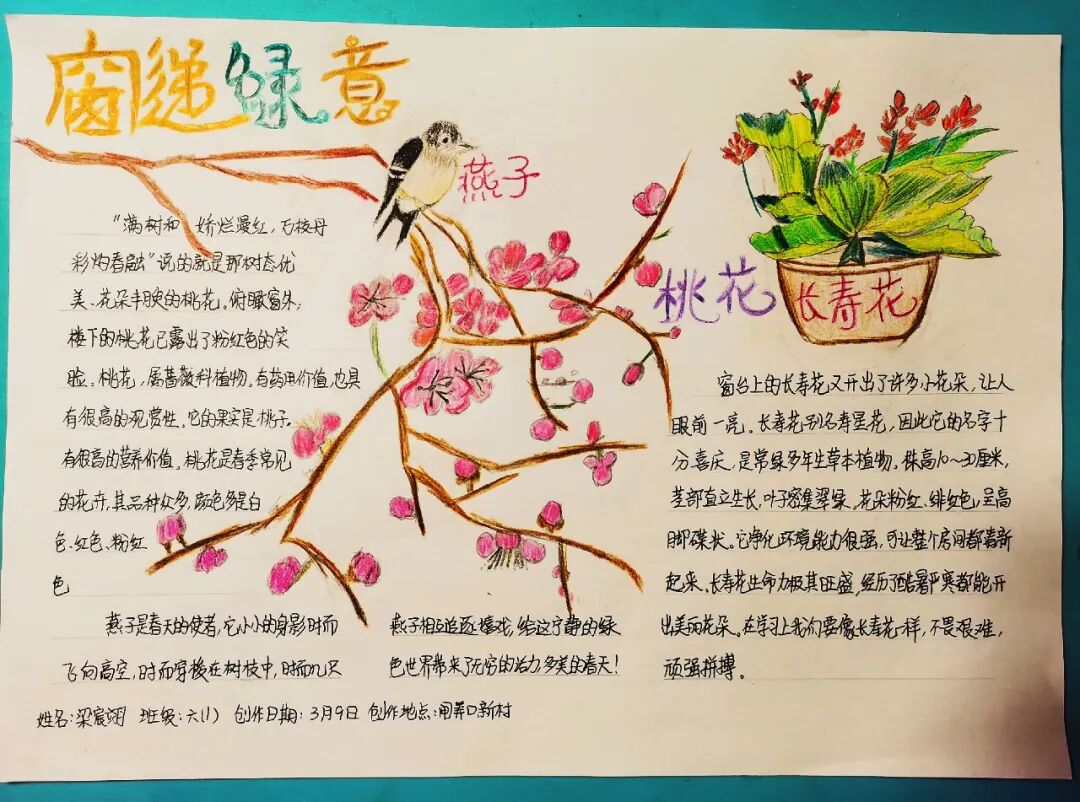 窗递綠意
燕子
桃花
长寿花
“满树和娇烂漫红，万枝丹
彩灼春融”说的就是那树态优
美、花朵丰腴的桃花。俯瞰窗外，
楼下的桃花已露出了粉红色的笑
脸。桃花，属蔷薇科植物。有药用价值，也具
有很高的观赏性。它的果实是桃子。
有很高的营养价值。桃花是春季常见
的花卉。其品种众多，颜色多是白
色、红色、粉红
色
燕子是春天的使者，它小小的身影时而
飞向高空，时而穿梭在树枝中，时而几只
燕子相互追逐嬉戏，给这宁静的绿
色世界带来了无穷的活力多美的春天！
窗台上的长寿花又开出了许多小花朵，让人
眼前一亮。长寿花别名寿星花，因此它的名字十
分喜庆。是常绿多年生草本植物。株高10～30厘米，
茎部直立生长，叶子密集翠绿。花朵粉红、绯红色，呈高
脚碟状。它净化环境能力很强，可让整个房间都清新
起来。长寿花生命力极其旺盛，经历了酷暑严寒都能开
出美丽花朵。在学习上我们要像长寿花一样，不畏艰难，
顽强拼搏。
姓名：梁宸翊 班级：六(1) 创作日期：3月9日 创作地点：闸弄口新村